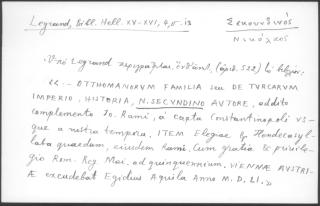 Legrand, Bibl. Hell. XV-XVI, 4, σ. 13
Σεκουνδινός
Νικόλαος
Ὑπὸ Legrand περιγράφεται ἔκδοσις (ἀριθ. 522)
«.- OTTHOMANORUM FAMILIA seu DE TURCARUM
IMPERIO, HISTORIA, N. SECVNDINO AVTORE, addito
complemento Jo. Rami, à capta Constantinopoli us-
que a nostra tempora, ITEM Elegiae & Hendecasyl-
laba quaedam, eiusdem Rami. Cum gratia & privile-
gio Rom. Reg. Mai. ad quinquennium. VIENNAE AVSTRI-
Æ excudebat Egidius Aquila Anno M. D. LI.»